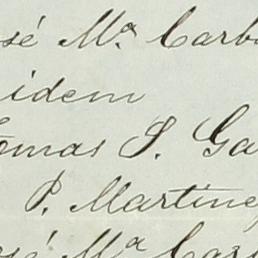 osé Mª Carb
idem
omas S. Ga
P. Martine
osé Mª Car